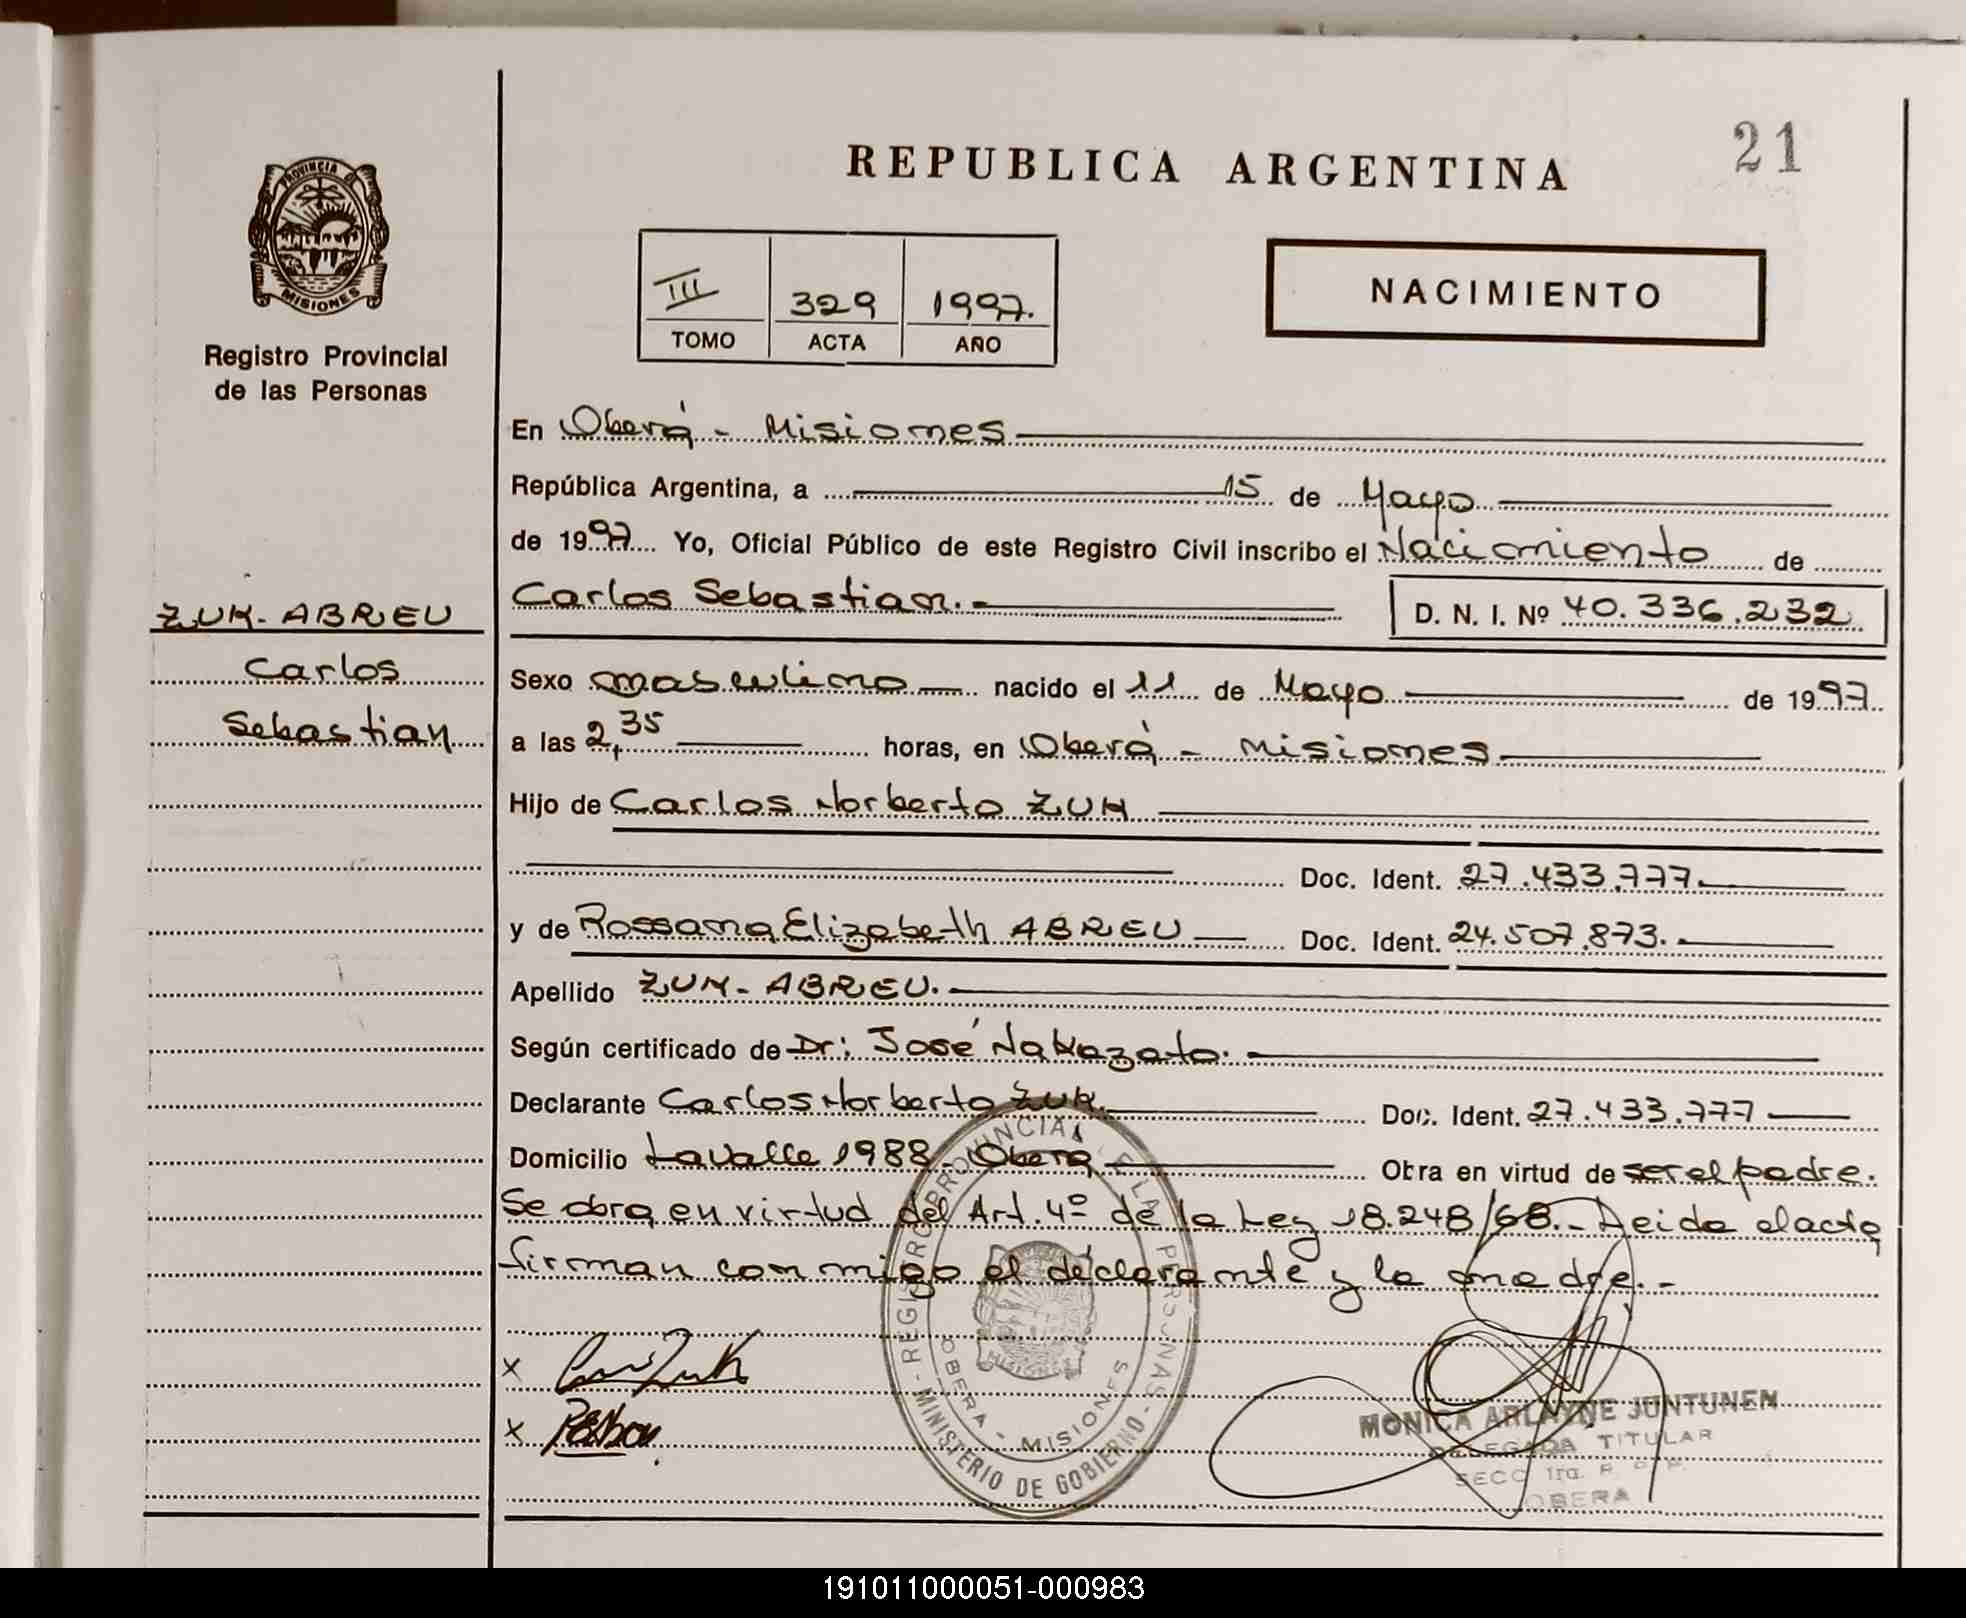 REPUBLICA ARGENTINA
21
PROVINCIA DE
MISIONES
Registro Provincial
de las Personas
III 329 1997.
TOMO ACTA AÑO
NACIMIENTO
En Oberá - Misiones
República Argentina, a 15 de Mayo
de 1997 Yo, Oficial Público de este Registro Civil inscribo el Nacimiento de
Carlos Sebastian.- D. N. I. Nº 40.336.232
ZUK-ABREU
Carlos
Sebastian
Sexo masculino nacido el 11 de Mayo de 1997
a las 2,35 horas, en Oberá - Misiones
Hijo de Carlos Norberto ZUK
Doc. Ident. 27.433.777.
y de Rossana Elizabeth ABREU Doc. Ident. 24.507.873.
Apellido ZUK-ABREU.
Según certificado de Dr: José Nakazato.
Declarante Carlos Norberto ZUK. Doc. Ident. 27.433.777
Domicilio Lavalle 1988 - Obera Obra en virtud de ser el padre.
Se obra en virtud del Art. 4º de la Ley 18.248/68.- Leida el acta
firman conmigo el declarante y la madre.-
x
x
REGISTRO PROVINCIAL DE LAS PERSONAS - MINISTERIO DE GOBIERNO -
OBERA - MISIONES
MISIONES
MONICA ARLAYNE JUNTUNEN
DELEGADA TITULAR
SECC 1ra. R. P. P.
OBERA
191011000051-000983